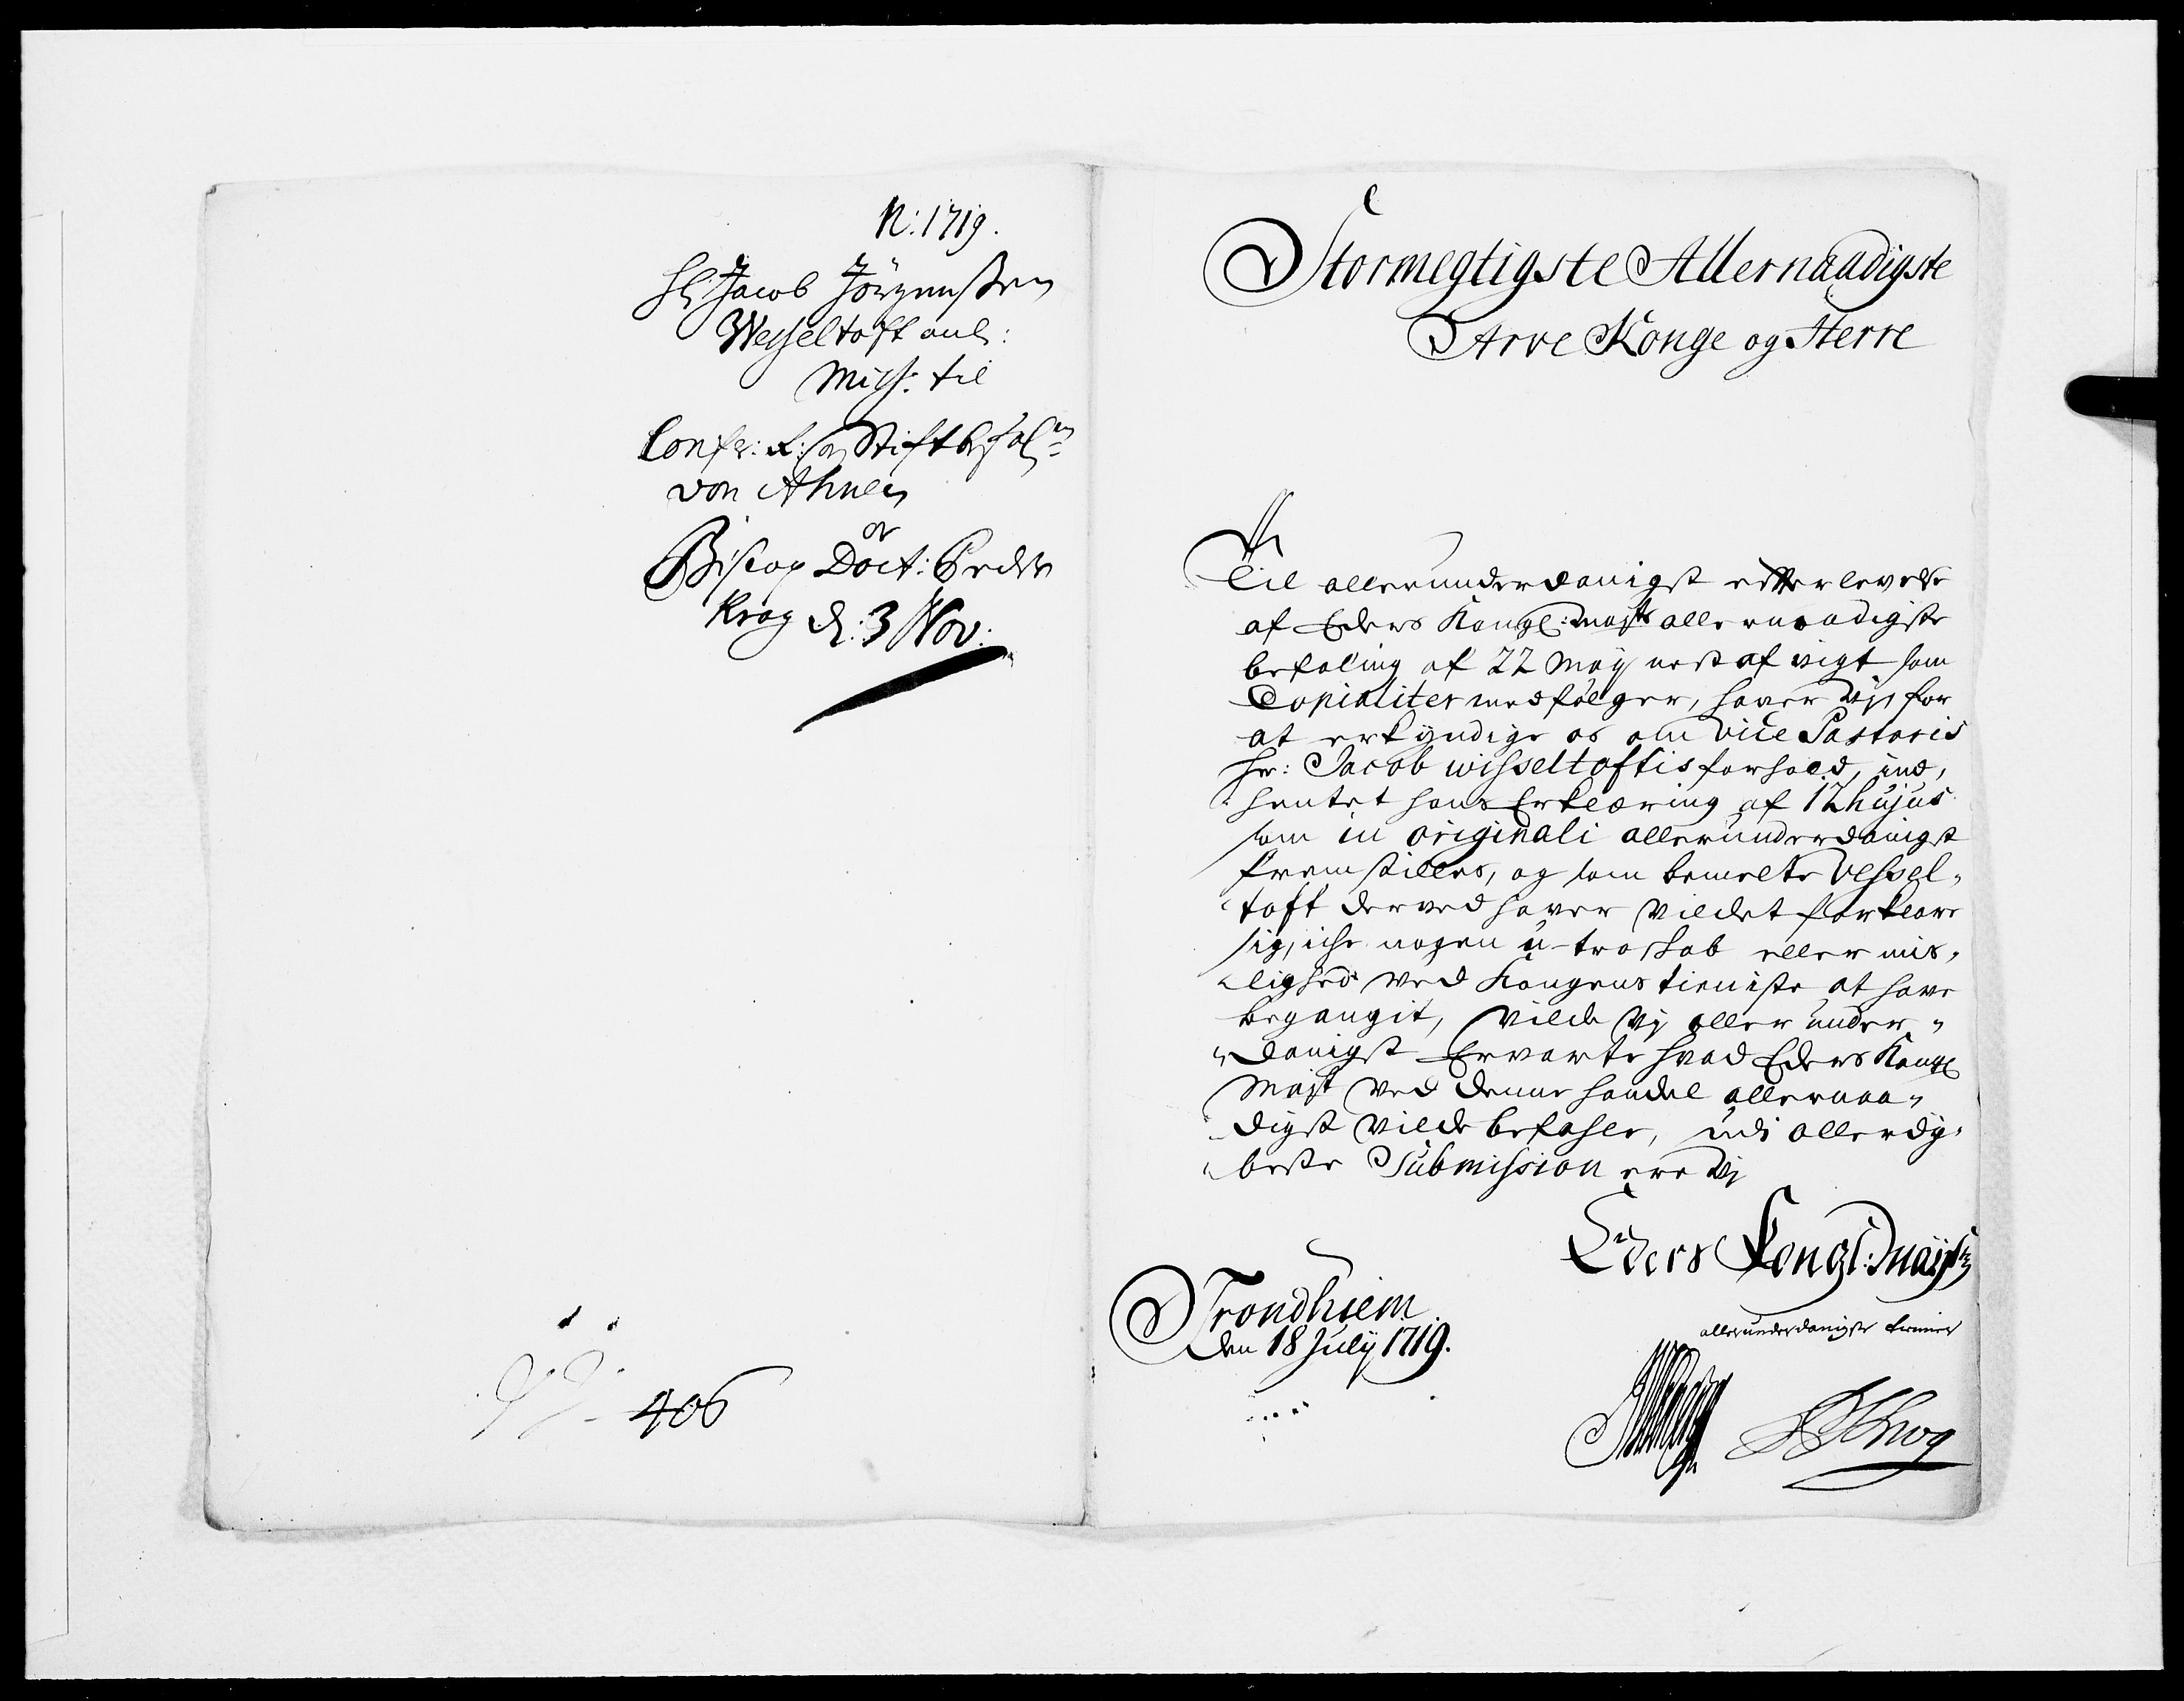 N: 1719.
Hr Jacob Jörgenssen
Wesseltoft anl:
Miss: til
Conf: R: og Stiftbefal:
von Ahnen
og
Biscop Doct: Peder
Krog d: 3 Nov:
406
Stormegtigste Allernaadigste
Arve Konge og Herre
Til allerunderdanigst efterlevelse
af Eders Kongl: Mayts allernaadigste
befaling af 22 Maÿ nest afvigt som
Copialiter medfølger, haver vj, for
at erkÿndige os om vice Pastoris
Hr: Jacob Wisseltoftis forhold, ind,
hentet hans Erklæring af 12 hujus
som in originali allerunderdanigst
fremstilles, og som bemelte Vessel,
toft derved haver vildet forklare
sig, iche nogen u-troskab eller mis,
lighed ved Kongens tieniste at have
begangit, vilde vj aller under,
danigst Ervarte hvad Eders Kongl
Mayt ved denne handel allernaa,
digst vilde befahle, udi allerdÿ,
beste Submission ere vj
Eders Kongl: Mayts
allerunderdanigste tienner
Trondhiem
den 18 Julÿ 1719.
Krog